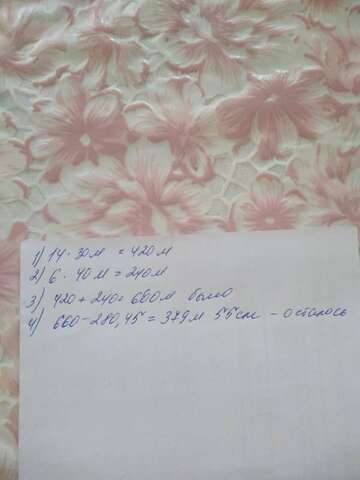 1) 14 · 30 м = 420 м
2) 6 · 40 м = 240 м
3) 420 + 240 = 660 м было
4) 660 - 280,45 = 379 м 55 см - осталось